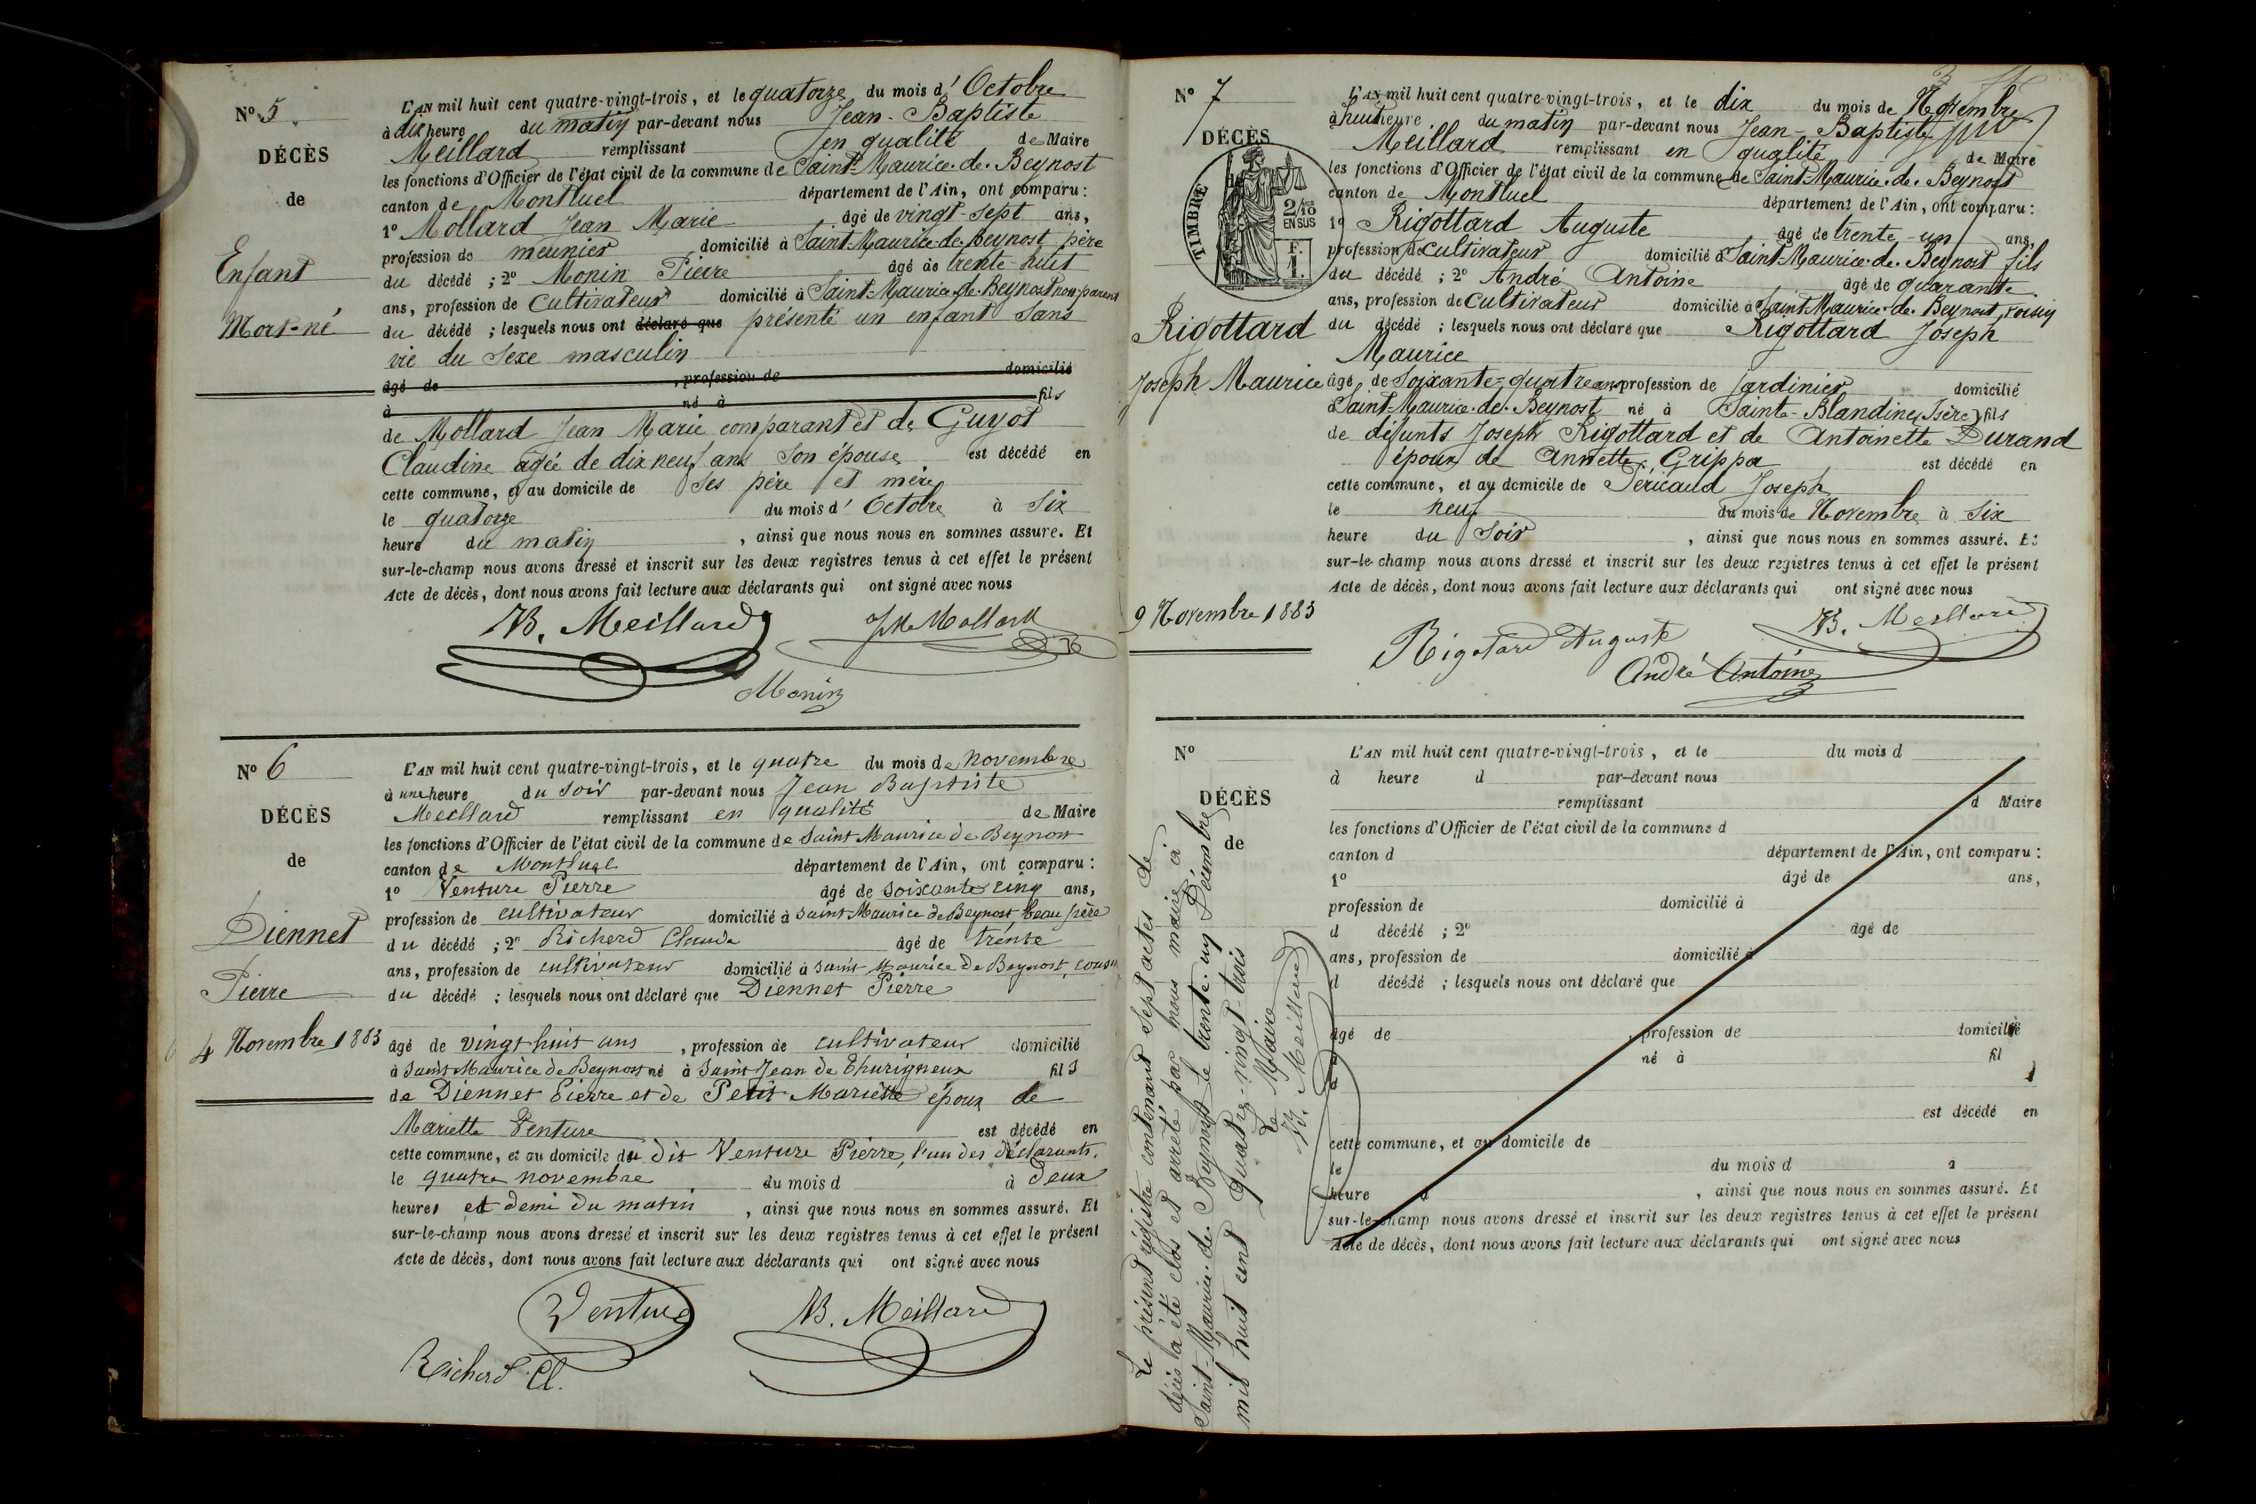 N° 5
DÉCÈS
de
Enfant
Mort-né
L'AN mil huit cent quatre-vingt-trois, et le quatorze du mois d'Octobre
à dix heure du matin par-devant nous Jean-Baptiste
Meillard remplissant en qualité de Maire
les fonctions d'Officier de l'état civil de la commune de Saint-Maurice-de-Beynost
canton de Montluel département de l'Ain, ont comparu :
1° Mollard Jean Marie âgé de vingt-sept ans,
profession de meunier domicilié à Saint-Maurice-de-Beynost père
du décédé ; 2° Monin Pierre âgé de trente-huit
ans, profession de Cultivateur domicilié à Saint-Maurice-de-Beynost non parent
du décédé ; lesquels nous ont déclaré que présenté un enfant sans
vie du sexe masculin
âgé de , profession de domicilié
à né à fils
de Mollard Jean Marie comparant et de Guyot
Claudine agée de dix neuf ans son épouse est décédé en
cette commune, et au domicile de Ses père et mère
le quatorze du mois d'Octobre à Six
heure du matin , ainsi que nous nous en sommes assuré. Et
sur-le-champ nous avons dressé et inscrit sur les deux registres tenus à cet effet le présent
Acte de décès, dont nous avons fait lecture aux déclarants qui ont signé avec nous
JB. Meillard JM Mollard
Monin
N° 6
DÉCÈS
de
Diennet
Pierre
4 Novembre 1883
L'AN mil huit cent quatre-vingt-trois, et le quatre du mois de novembre
à une heure du soir par-devant nous Jean Baptiste
Meillard remplissant en qualité de Maire
les fonctions d'Officier de l'état civil de la commune de Saint Maurice de Beynost
canton de Montluel département de l'Ain, ont comparu :
1° Venture Pierre âgé de soixante cinq ans,
profession de cultivateur domicilié à Saint Maurice de Beynost, beau père
du décédé ; 2° Richerd Claude âgé de trente
ans, profession de cultivateur domicilié à Saint Maurice de Beynost, cousin
du décédé ; lesquels nous ont déclaré que Diennet Pierre
âgé de vingt huit ans , profession de cultivateur domicilié
à Saint Maurice de Beynost né à Saint Jean de Thurigneux fils
de Diennet Pierre et de Petit Mariette époux de
Mariette Venture est décédé en
cette commune, et au domicile du dit Venture Pierre, l'un des déclarants.
le quatre novembre du mois d à deux
heures et demi du matin , ainsi que nous nous en sommes assuré. Et
sur-le-champ nous avons dressé et inscrit sur les deux registres tenus à cet effet le présent
Acte de décès, dont nous avons fait lecture aux déclarants qui ont signé avec nous
Venture JB. Meillard
Richerd Cl.
N° 7
DÉCÈS
TIMBRE
2/10
EN SUS
F.
1.
Rigottard
Joseph Maurice
9 Novembre 1883
L'AN mil huit cent quatre-vingt-trois, et le dix du mois de Novembre
à huit heure du matin par-devant nous Jean-Baptiste
Meillard remplissant en qualité de Maire
les fonctions d'Officier de l'état civil de la commune de Saint-Maurice-de-Beynost
canton de Montluel département de l'Ain, ont comparu :
1° Rigottard Auguste âgé de trente-un ans,
profession de Cultivateur domicilié à Saint-Maurice-de-Beynost fils
du décédé ; 2° André Antoine âgé de quarante
ans, profession de Cultivateur domicilié à Saint-Maurice-de-Beynost, voisin
du décédé ; lesquels nous ont déclaré que Rigottard Joseph
Maurice
âgé de Soixante-quatre ans profession de Jardinier domicilié
à Saint-Maurice-de-Beynost né à Sainte-Blandine (Isère) fils
de défunts Joseph Rigottard et de Antoinette Durand
époux de Annette Grippa est décédé en
cette commune, et au domicile de Péricaud Joseph
le neuf du mois de Novembre à Six
heure du Soir , ainsi que nous nous en sommes assuré. Et
sur-le-champ nous avons dressé et inscrit sur les deux registres tenus à cet effet le présent
Acte de décès, dont nous avons fait lecture aux déclarants qui ont signé avec nous
Rigotard Auguste JB. Meillard
André Antoine
N°
DÉCÈS
de
L'AN mil huit cent quatre-vingt-trois, et le du mois d
à heure d par-devant nous
remplissant d Maire
les fonctions d'Officier de l'état civil de la commune d
canton d département de l'Ain, ont comparu :
1° âgé de ans,
profession de domicilié à
d décédé ; 2° âgé de
ans, profession de domicilié à
d décédé ; lesquels nous ont déclaré que
âgé de , profession de domicilié
à né à fil
d
est décédé en
cette commune, et au domicile de
le du mois d à
heure d , ainsi que nous nous en sommes assuré. Et
sur-le-champ nous avons dressé et inscrit sur les deux registres tenus à cet effet le présent
Acte de décès, dont nous avons fait lecture aux déclarants qui ont signé avec nous
Le présent régistre contenant sept actes de
décès a été clos et arrêté par nous maire à
Saint-Maurice-de-Beynost le trente-un Décembre
mil huit cent quatre-vingt-trois
Le Maire
JB. Meillard